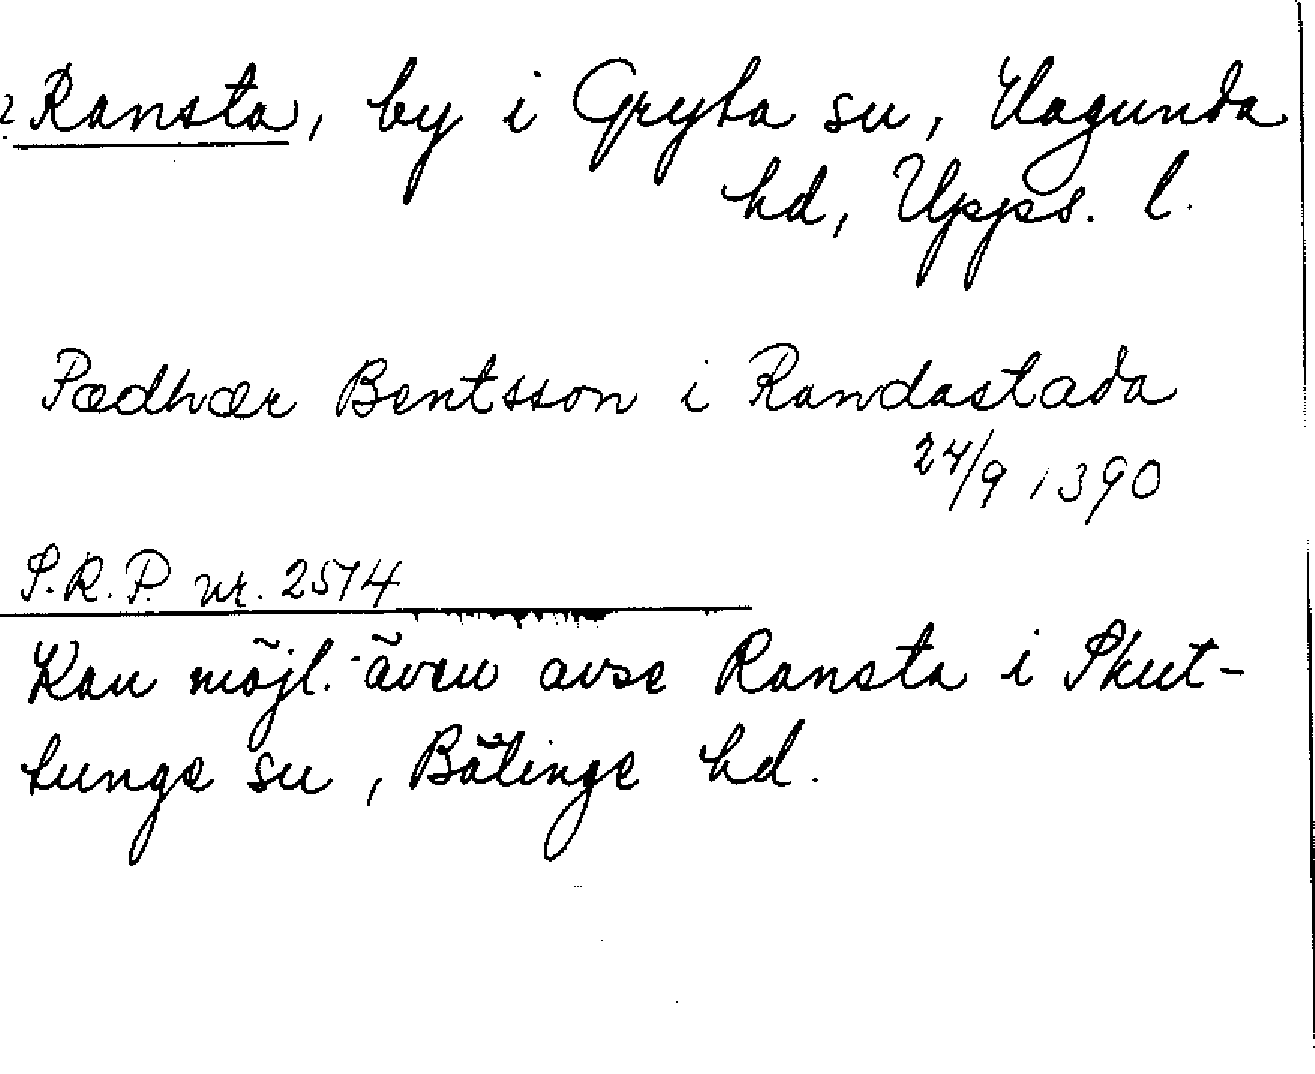 ? Ransta, by i Gryta sn, Hagunda
hd, Upps. l.
Pædhær Bentsson i Randastada
24/9 1390
S.R.P. nr. 2514
Kan möjl. även avse Ransta i Skut-
tunge sn, Bälinge hd.